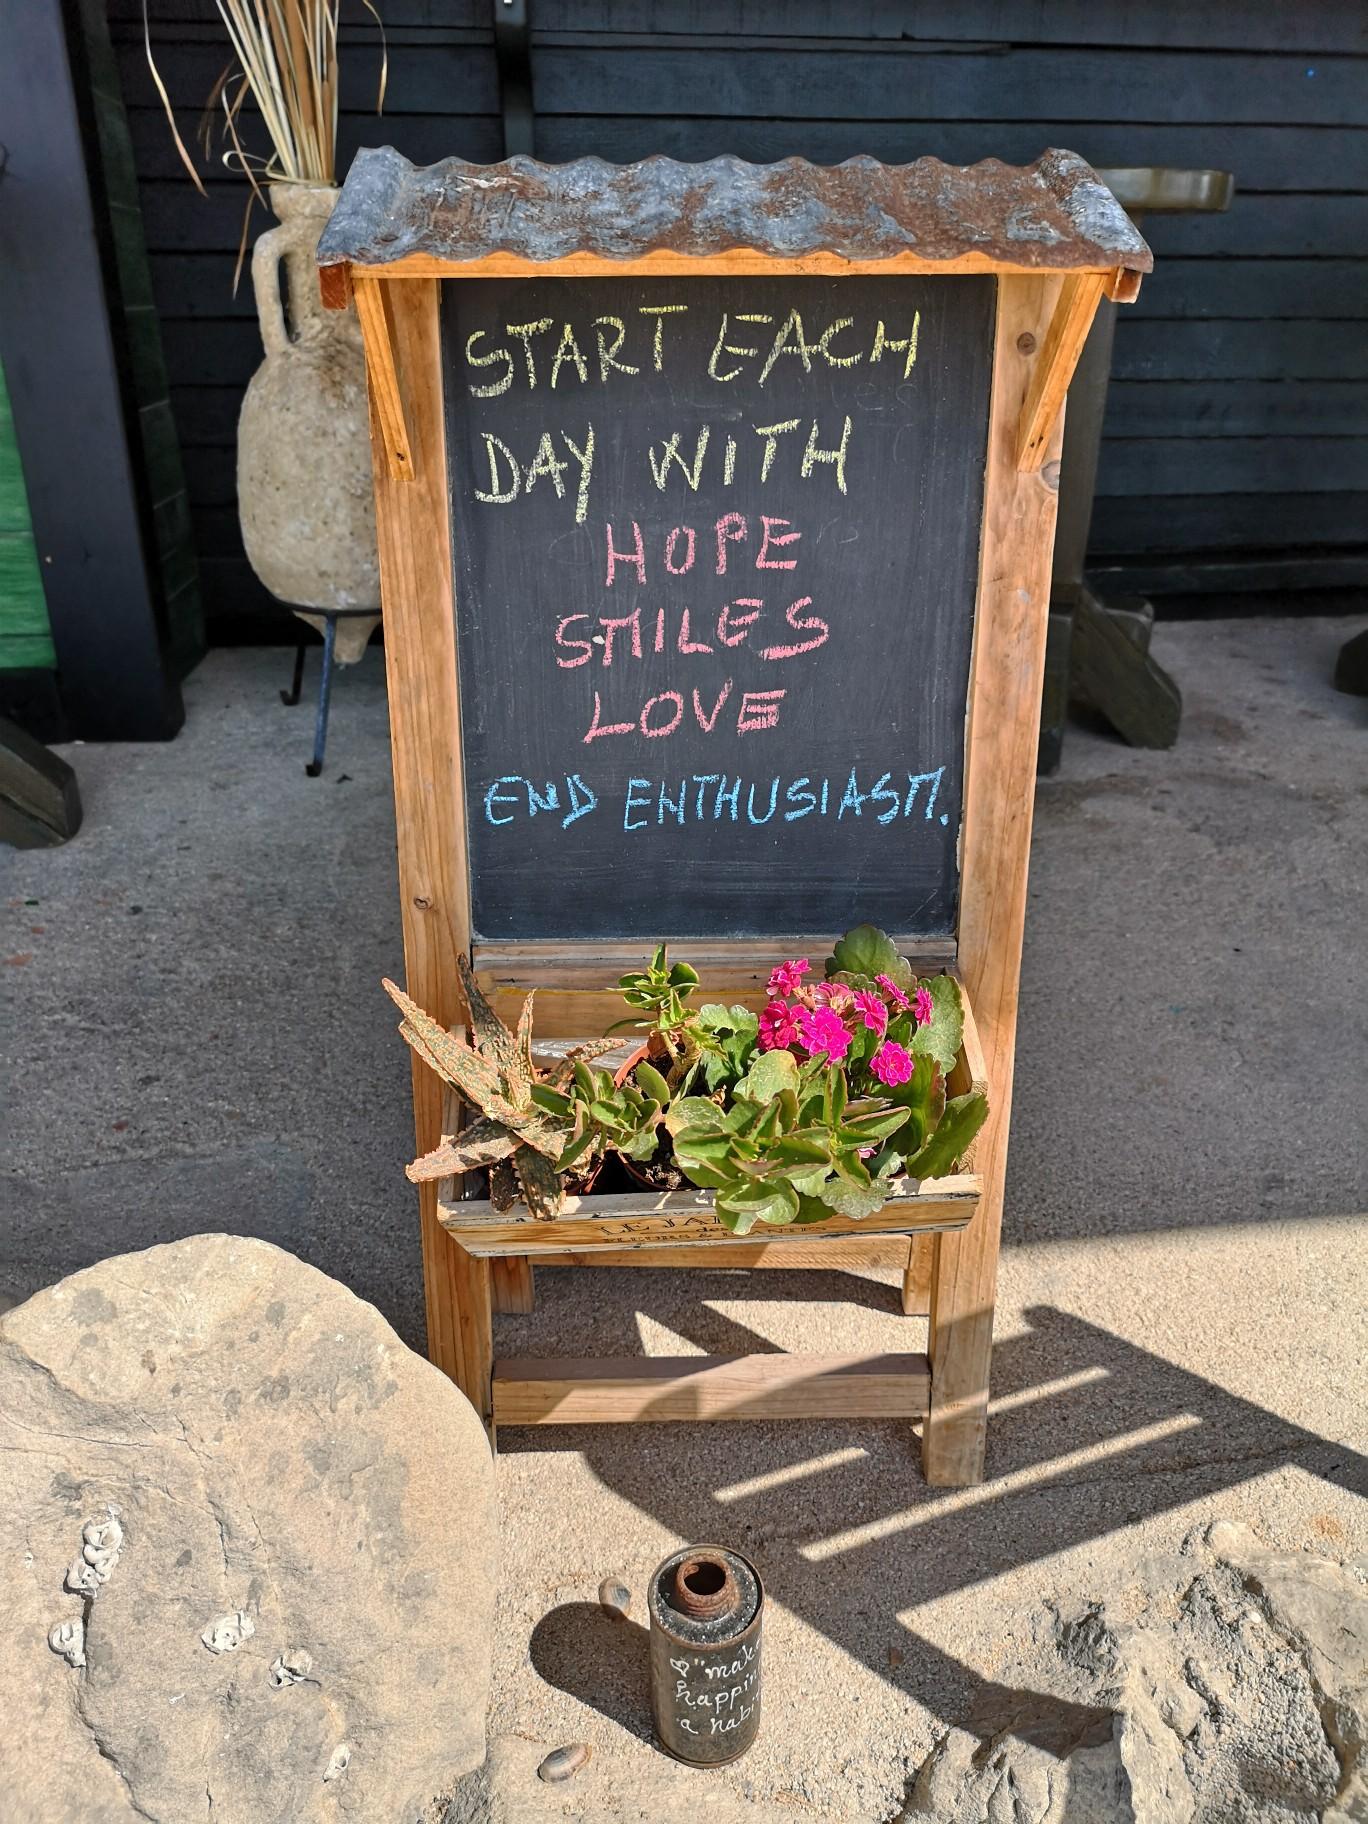 START EACH
DAY WITH
HOPE
SMILES
LOVE
END ENTHUSIASM.
LE
♡ "make
happin
a hab